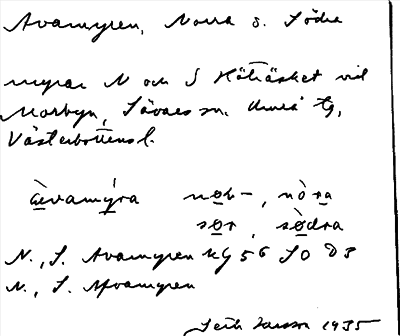 Avamyren, Norra o. Södra
myrar N och S Hötträsket vid
Morbyn, Sävars sn. Umeå tg,
Västerbottens l.
àevamýra nor-, nòra
sør, sødra
N., S. Avamyren kg 56 SO D3
N., S. Afvamyren
Jansson 1935